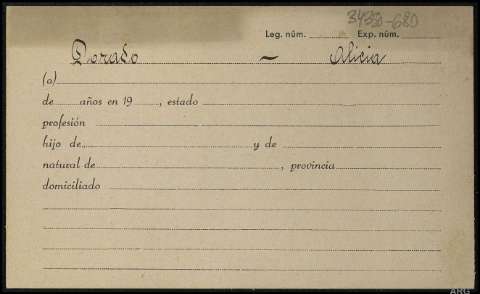 3430-680
Leg. núm. Exp. núm.
Dorado ~ Alicia
(a)
de años en 19 , estado
profesión
hijo de y de
natural de , provincia
domiciliado
ARG